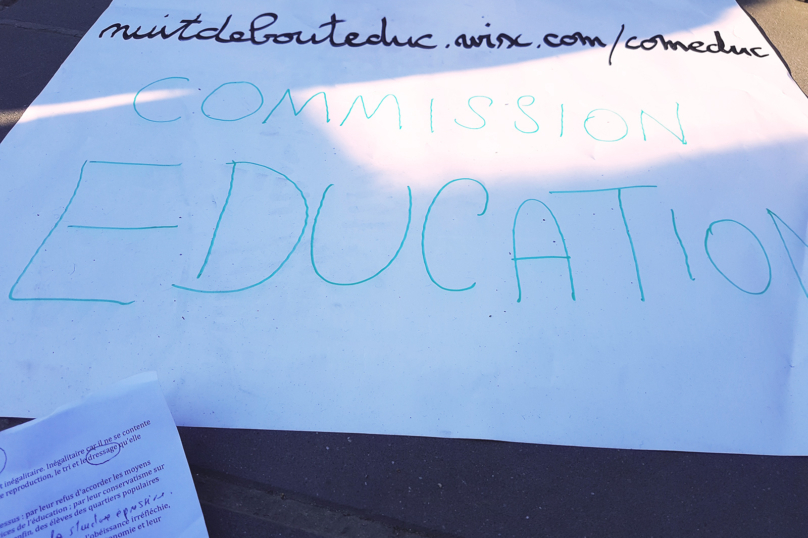 nuitdebouteduc.wix.com/comeduc
COMMISSION
EDUCATION
t inégalitaire. Inégalitaire car il ne se contente
e reproduction, le tri et le dressage qu'elle
essus : par leur refus d'accorder les moyens
ices de l'éducation ; par leur conservatisme sur
nfin, des élèves des quartiers populaires
l'obéissance irréfléchie,
onomie et leur